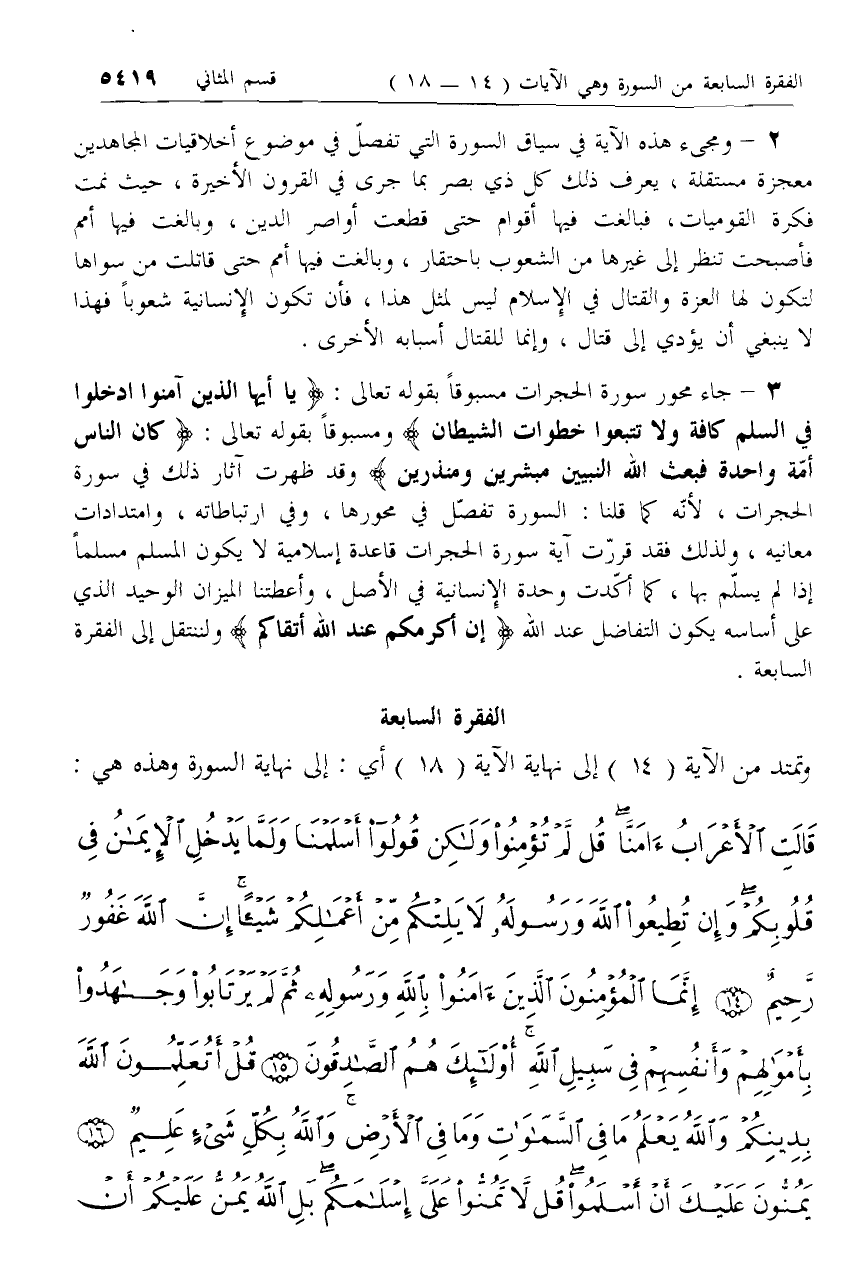 الفقرة السابعة من السورة وهي الآيات ( ١٤ — ١٨ ) قسم المثاني ٥٤١٩
٢ – ومجيء هذه الآية في سياق السورة التي تفصلّ في موضوع أخلاقيات المجاهدين
معجزة مستقلة ، يعرف ذلك كل ذي بصر بما جرى في القرون الأخيرة ، حيث نمت
فكرة القوميات ، فبالغت فيها أقوام حتى قطعت أواصر الدين ، وبالغت فيها أمم
فأصبحت تنظر إلى غيرها من الشعوب باحتقار ، وبالغت فيها أمم حتى قاتلت من سواها
لتكون لها العزة والقتال في الإسلام ليس لمثل هذا ، فأن تكون الإنسانية شعوباً فهذا
لا ينبغي أن يؤدي إلى قتال ، وإنما للقتال أسبابه الأخرى .
٣ – جاء محور سورة الحجرات مسبوقاً بقوله تعالى : ﴿ يا أيها الذين آمنوا ادخلوا
في السلم كافة ولا تتبعوا خطوات الشيطان ﴾ ومسبوقاً بقوله تعالى : ﴿ كان الناس
أمّة واحدة فبعث الله النبيين مبشرين ومنذرين ﴾ وقد ظهرت آثار ذلك في سورة
الحجرات ، لأنّه كما قلنا : السورة تفصّل في محورها ، وفي ارتباطاته ، وامتدادات
معانيه ، ولذلك فقد قررّت آية سورة الحجرات قاعدة إسلامية لا يكون المسلم مسلماً
إذا لم يسلّم بها ، كما أكّدت وحدة الإنسانية في الأصل ، وأعطتنا الميزان الوحيد الذي
على أساسه يكون التفاضل عند الله ﴿ إن أكرمكم عند الله أتقاكم ﴾ ولننتقل إلى الفقرة
السابعة .
الفقرة السابعة
وتمتد من الآية ( ١٤ ) إلى نهاية الآية ( ١٨ ) أي : إلى نهاية السورة وهذه هي :
قَالَتِ ٱلْأَعْرَابُ ءَامَنَّا ۖ قُل لَّمْ تُؤْمِنُوا۟ وَلَٰكِن قُولُوٓا۟ أَسْلَمْنَا وَلَمَّا يَدْخُلِ ٱلْإِيمَٰنُ فِى
قُلُوبِكُمْ ۖ وَإِن تُطِيعُوا۟ ٱللَّهَ وَرَسُولَهُۥ لَا يَلِتْكُم مِّنْ أَعْمَٰلِكُمْ شَيْـًٔا ۚ إِنَّ ٱللَّهَ غَفُورٌ
رَّحِيمٌ ١٤ إِنَّمَا ٱلْمُؤْمِنُونَ ٱلَّذِينَ ءَامَنُوا۟ بِٱللَّهِ وَرَسُولِهِۦ ثُمَّ لَمْ يَرْتَابُوا۟ وَجَٰهَدُوا۟
بِأَمْوَٰلِهِمْ وَأَنفُسِهِمْ فِى سَبِيلِ ٱللَّهِ ۚ أُو۟لَٰٓئِكَ هُمُ ٱلصَّٰدِقُونَ ١٥ قُلْ أَتُعَلِّمُونَ ٱللَّهَ
بِدِينِكُمْ وَٱللَّهُ يَعْلَمُ مَا فِى ٱلسَّمَٰوَٰتِ وَمَا فِى ٱلْأَرْضِ ۚ وَٱللَّهُ بِكُلِّ شَىْءٍ عَلِيمٌ ١٦
يَمُنُّونَ عَلَيْكَ أَنْ أَسْلَمُوا۟ ۖ قُل لَّا تَمُنُّوا۟ عَلَىَّ إِسْلَٰمَكُم ۖ بَلِ ٱللَّهُ يَمُنُّ عَلَيْكُمْ أَنْ